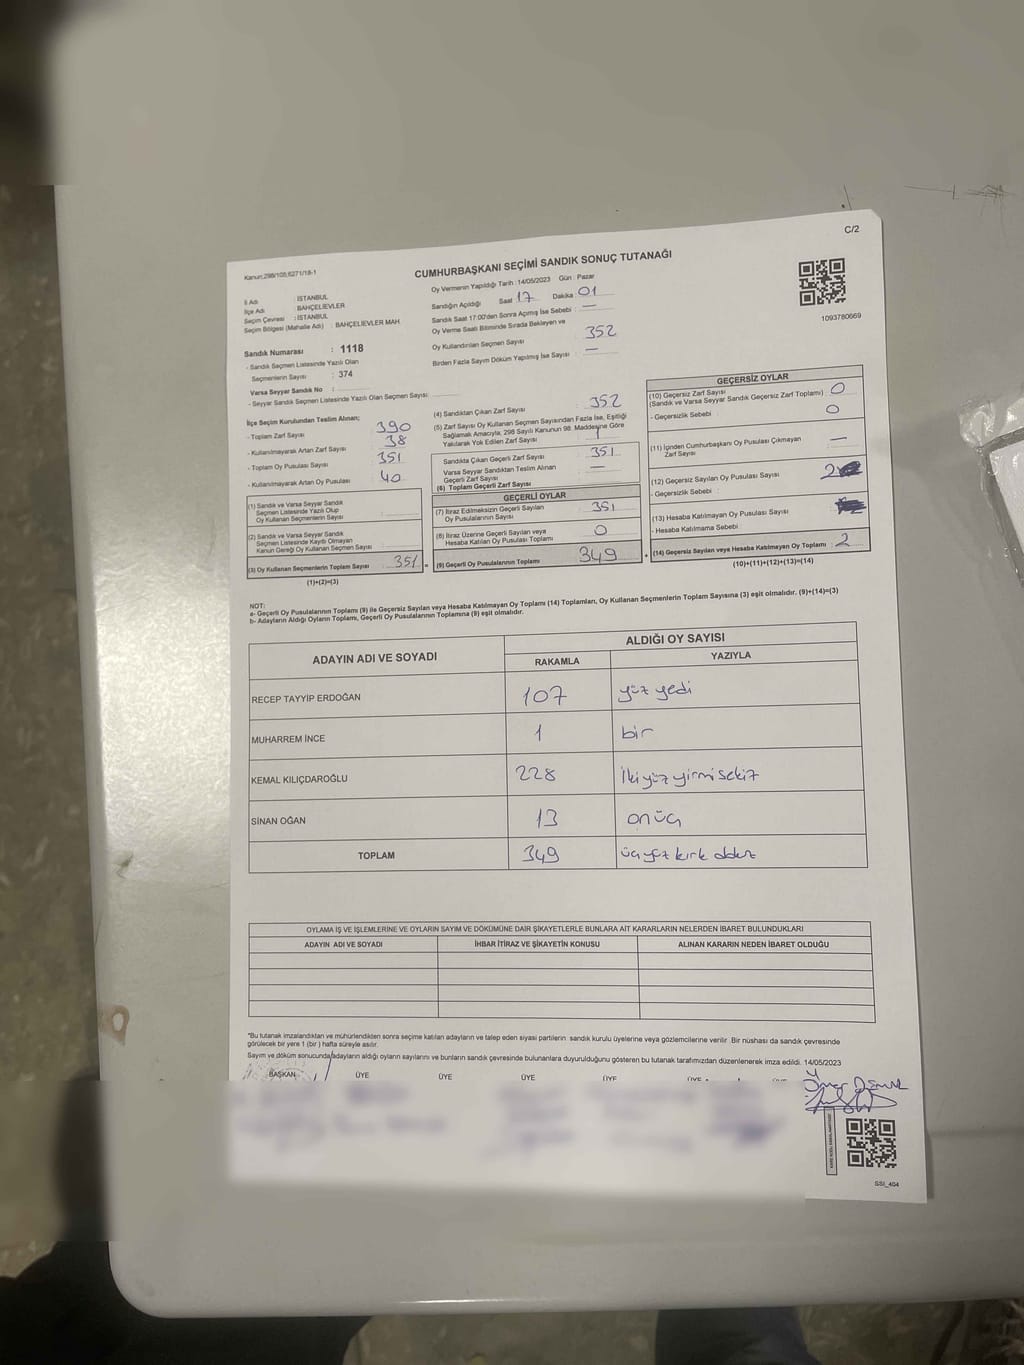 C/2
Kanun:298/105,6271/18-1
CUMHURBAŞKANI SEÇİMİ SANDIK SONUÇ TUTANAĞI
İl Adı : İSTANBUL
İlçe Adı : BAHÇELİEVLER
Seçim Çevresi : İSTANBUL
Seçim Bölgesi (Mahalle Adı) : BAHÇELİEVLER MAH.
Sandık Numarası : 1118
- Sandık Seçmen Listesinde Yazılı Olan
Seçmenlerin Sayısı : 374
Varsa Seyyar Sandık No :
- Seyyar Sandık Seçmen Listesinde Yazılı Olan Seçmen Sayısı:
Oy Vermenin Yapıldığı Tarih : 14/05/2023 Gün : Pazar
Sandığın Açıldığı Saat 17 Dakika : 01
Sandık Saat 17:00'den Sonra Açılmış İse Sebebi : —
Oy Verme Saati Bitiminde Sırada Bekleyen ve
Oy Kullandırılan Seçmen Sayısı 352
Birden Fazla Sayım Döküm Yapılmış İse Sayısı : —
1093780669
İlçe Seçim Kurulundan Teslim Alınan;
- Toplam Zarf Sayısı 390
- Kullanılmayarak Artan Zarf Sayısı 38
- Toplam Oy Pusulası Sayısı 351
- Kullanılmayarak Artan Oy Pusulası 40
(1) Sandık ve Varsa Seyyar Sandık
Seçmen Listesinde Yazılı Olup
Oy Kullanan Seçmenlerin Sayısı
(2) Sandık ve Varsa Seyyar Sandık
Seçmen Listesinde Kayıtlı Olmayan
Kanun Gereği Oy Kullanan Seçmen Sayısı
(3) Oy Kullanan Seçmenlerin Toplam Sayısı 351 =
(1)+(2)=(3)
(4) Sandıktan Çıkan Zarf Sayısı : 352
(5) Zarf Sayısı Oy Kullanan Seçmen Sayısından Fazla İse, Eşitliği
Sağlamak Amacıyla; 298 Sayılı Kanunun 98. Maddesine Göre
Yakılarak Yok Edilen Zarf Sayısı : 1
Sandıkta Çıkan Geçerli Zarf Sayısı : 351
Varsa Seyyar Sandıktan Teslim Alınan
Geçerli Zarf Sayısı —
(6) Toplam Geçerli Zarf Sayısı
GEÇERLİ OYLAR
(7) İtiraz Edilmeksizin Geçerli Sayılan
Oy Pusulalarının Sayısı : 351
(8) İtiraz Üzerine Geçerli Sayılan veya
Hesaba Katılan Oy Pusulası Toplamı : 0
(9) Geçerli Oy Pusulalarının Toplamı : 349 +
GEÇERSİZ OYLAR
(10) Geçersiz Zarf Sayısı
(Sandık ve Varsa Seyyar Sandık Geçersiz Zarf Toplamı) : 0
- Geçersizlik Sebebi : 0
(11) İçinden Cumhurbaşkanı Oy Pusulası Çıkmayan
Zarf Sayısı : —
(12) Geçersiz Sayılan Oy Pusulası Sayısı : 2
- Geçersizlik Sebebi :
(13) Hesaba Katılmayan Oy Pusulası Sayısı
- Hesaba Katılmama Sebebi
(14) Geçersiz Sayılan veya Hesaba Katılmayan Oy Toplamı : 2
(10)+(11)+(12)+(13)=(14)
NOT:
a- Geçerli Oy Pusulalarının Toplamı (9) ile Geçersiz Sayılan veya Hesaba Katılmayan Oy Toplamı (14) Toplamları, Oy Kullanan Seçmenlerin Toplam Sayısına (3) eşit olmalıdır. (9)+(14)=(3)
b- Adayların Aldığı Oyların Toplamı, Geçerli Oy Pusulalarının Toplamına (9) eşit olmalıdır.
ADAYIN ADI VE SOYADI ALDIĞI OY SAYISI
RAKAMLA YAZIYLA
RECEP TAYYİP ERDOĞAN 107 yüz yedi
MUHARREM İNCE 1 bir
KEMAL KILIÇDAROĞLU 228 İkiyüz yirmi sekiz
SİNAN OĞAN 13 onüç
TOPLAM 349 üçyüz kırk dokuz
OYLAMA İŞ VE İŞLEMLERİNE VE OYLARIN SAYIM VE DÖKÜMÜNE DAİR ŞİKAYETLERLE BUNLARA AİT KARARLARIN NELERDEN İBARET BULUNDUKLARI
ADAYIN ADI VE SOYADI İHBAR İTİRAZ VE ŞİKAYETİN KONUSU ALINAN KARARIN NEDEN İBARET OLDUĞU
*Bu tutanak imzalandıktan ve mühürlendikten sonra seçime katılan adayların ve talep eden siyasi partilerin sandık kurulu üyelerine veya gözlemcilerine verilir. Bir nüshası da sandık çevresinde
görülecek bir yere 1 (bir) hafta süreyle asılır.
Sayım ve döküm sonucunda adayların aldığı oyların sayılarını ve bunların sandık çevresinde bulunanlara duyurulduğunu gösteren bu tutanak tarafımızdan düzenlenerek imza edildi. 14/05/2023
BAŞKAN ÜYE ÜYE ÜYE ÜYE ÜYE
SSI_404